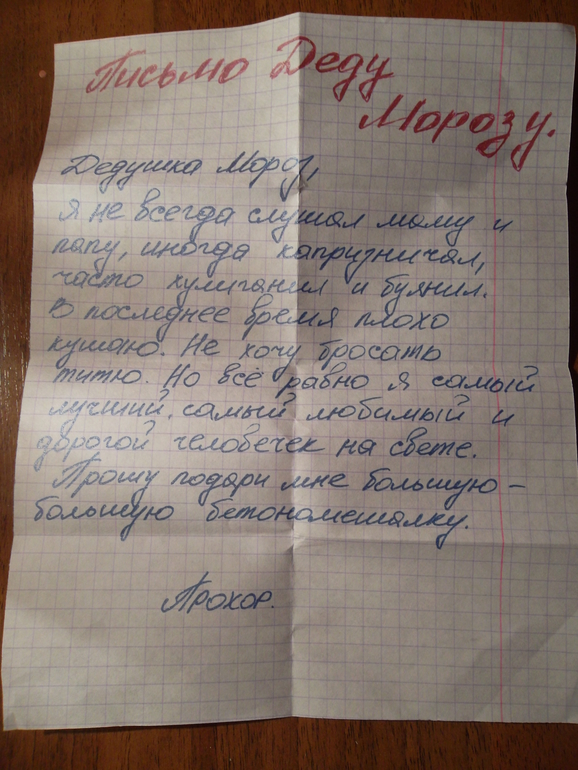 Письмо Деду
Морозу.
Дедушка Мороз,
я не всегда слушал маму и
папу, иногда капрузничал,
часто хулиганил и буянил.
В последнее время плохо
кушаю. Не хочу бросать
титю. Но всё равно я самый
лучший, самый любимый и
дорогой человечек на свете.
Прошу подари мне большую -
большую бетономешалку.
Прохор.